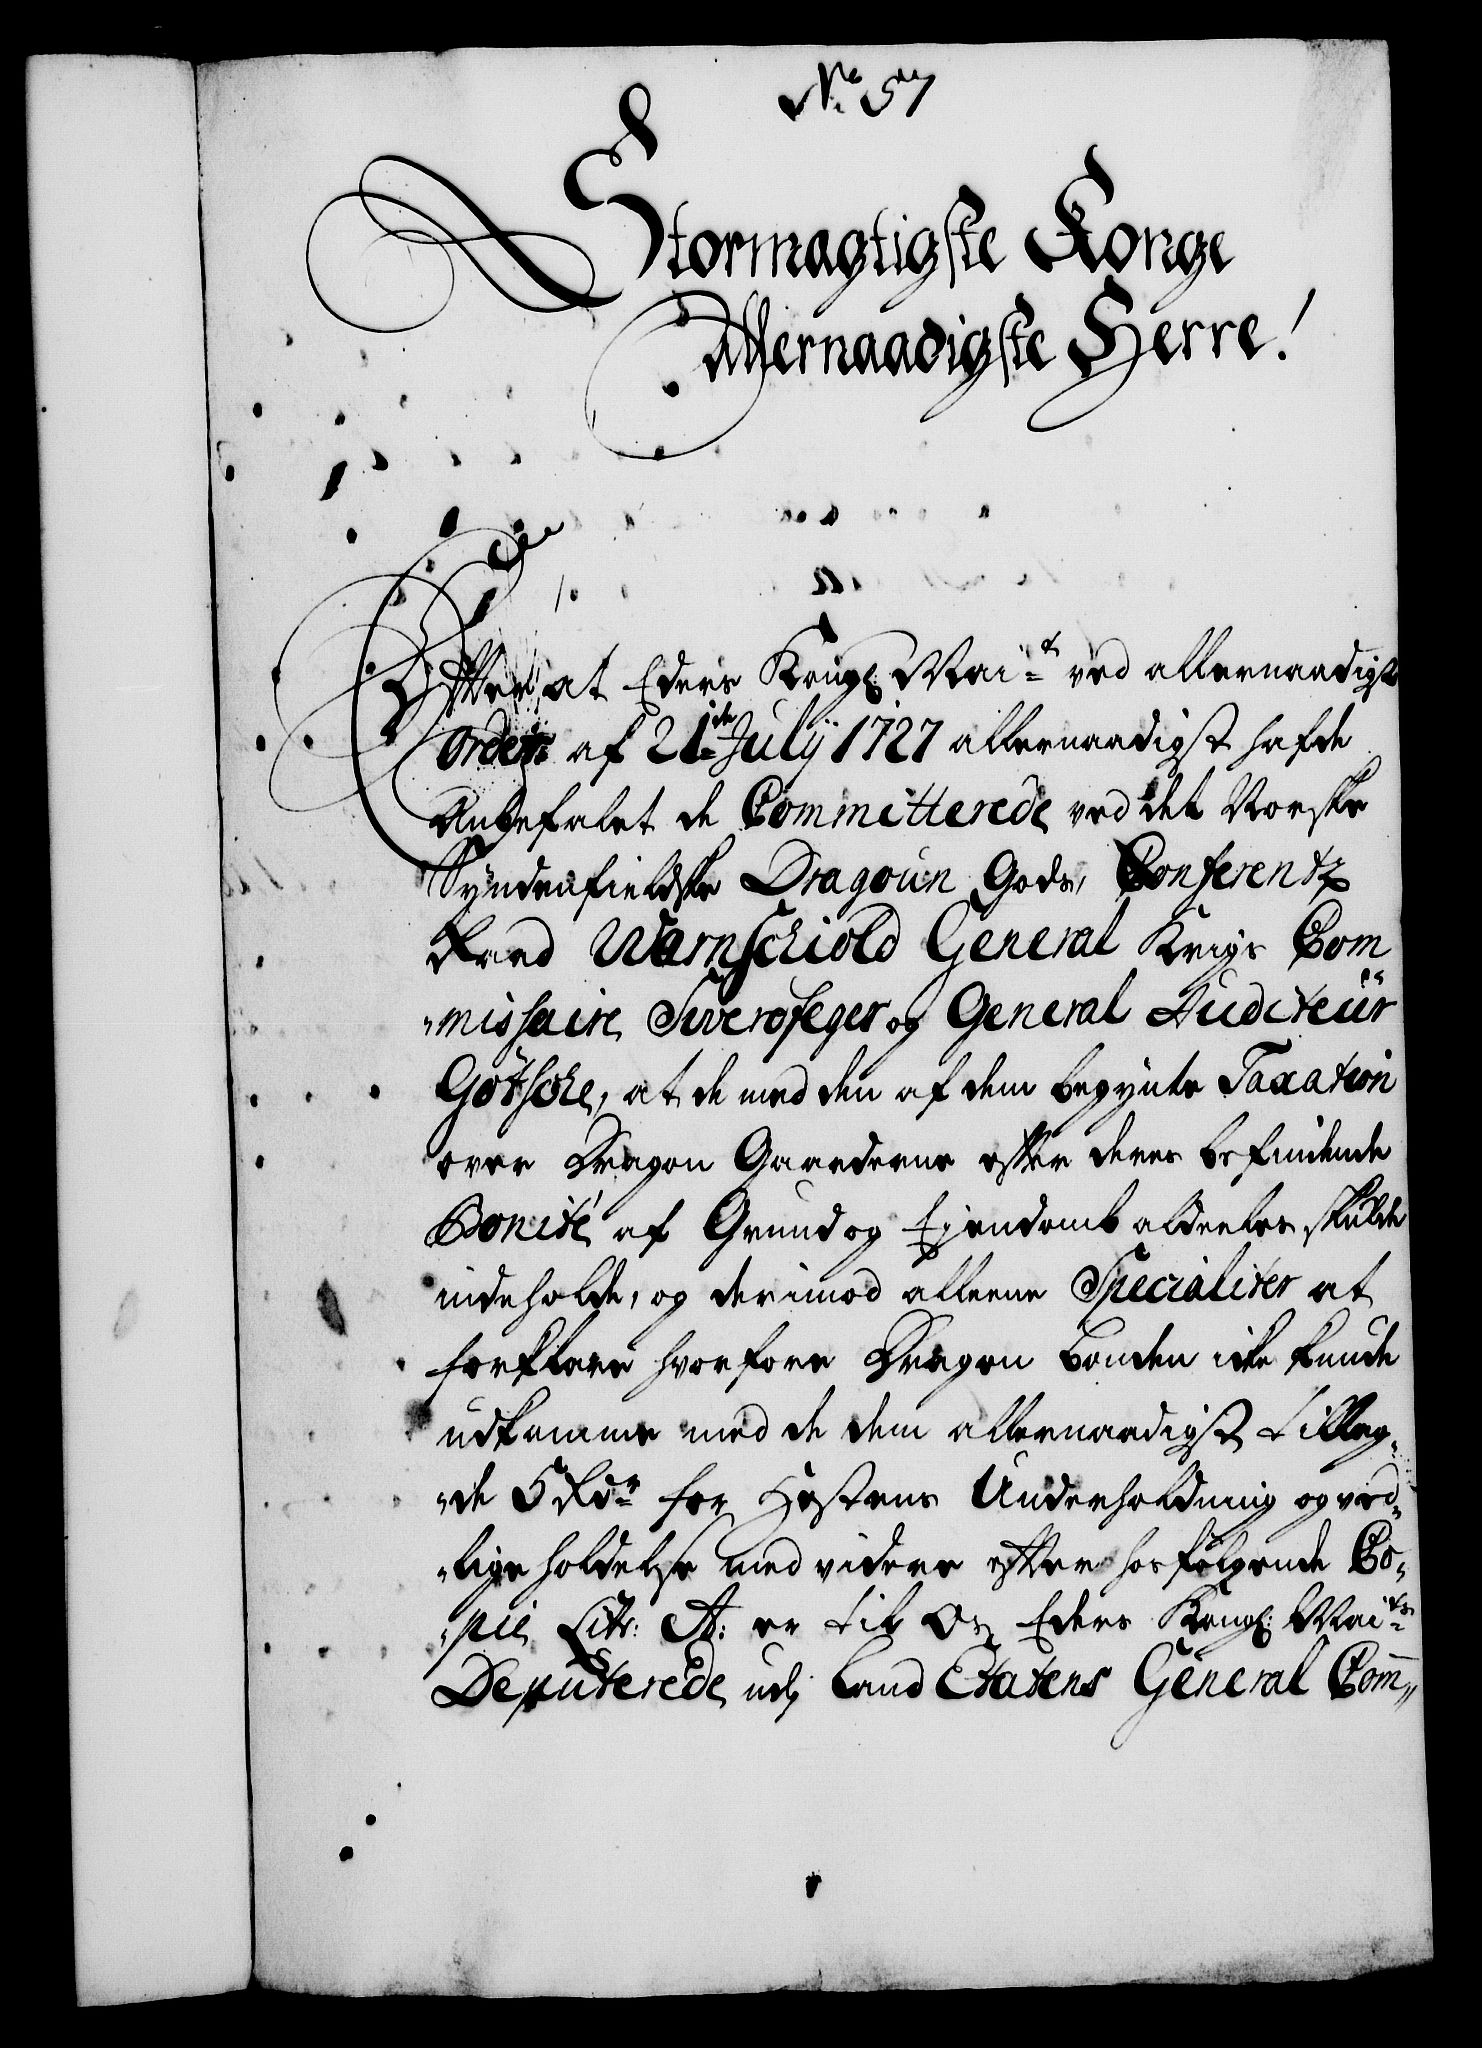 No 57
Stormagtigste Konge
Allernaadigste Herre!
Efter at Eders Kongl: Mai:t ved allernaadigst
Ordre af 21de Julij 1727 allernaadigst hafde
Anbefalet de Committerede ved det Norske
Syndenfieldske Dragoun Gods, Conferentz
Raad Warnschiold General Krigs Com
missaire Sverdfeger og General Auditeür
Götsche, at de med den af dem begynte Taxation
over Dragon Gaarderne efter deres befindende
Bonité af Grund og Ejendomb aldeeles skulde
indeholde, og derimod alleene Specialiter at
forklare hvorfore Dragon bonden icke kunde
udkomme med de dem allernaadigst tillag-
de 5 Rdr for Hestens Underholdning og ved-
lige holdelse med videre efter hosfølgende Co-
pie Litr: A: er til Os Eders Kongl: Mai:ts
Deputerede udj Land Etatens General Com̅